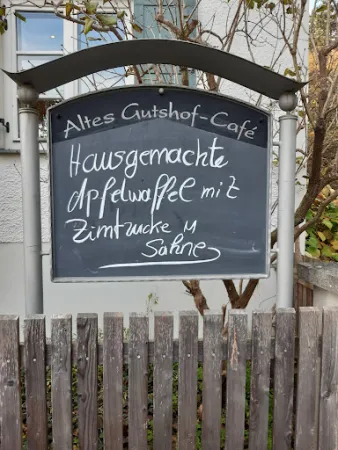 Altes Gutshof-Café
Hausgemachte
Apfelwaffel mit
Zimtzucke M
Sahne